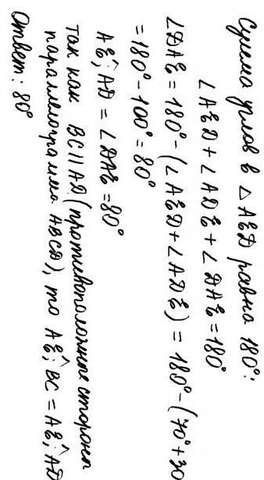 Сумма углов в △AED равна 180°:
∠AED + ∠ADE + ∠DAE = 180°
∠DAE = 180° - (∠AED + ∠ADE) = 180° - (70° + 30
= 180° - 100° = 80°
AE; AD = ∠DAE = 80°
Так как BC || AD (противоположные стороны
параллелограмма ABCD), то AE; BC = AE; AD
Ответ: 80°